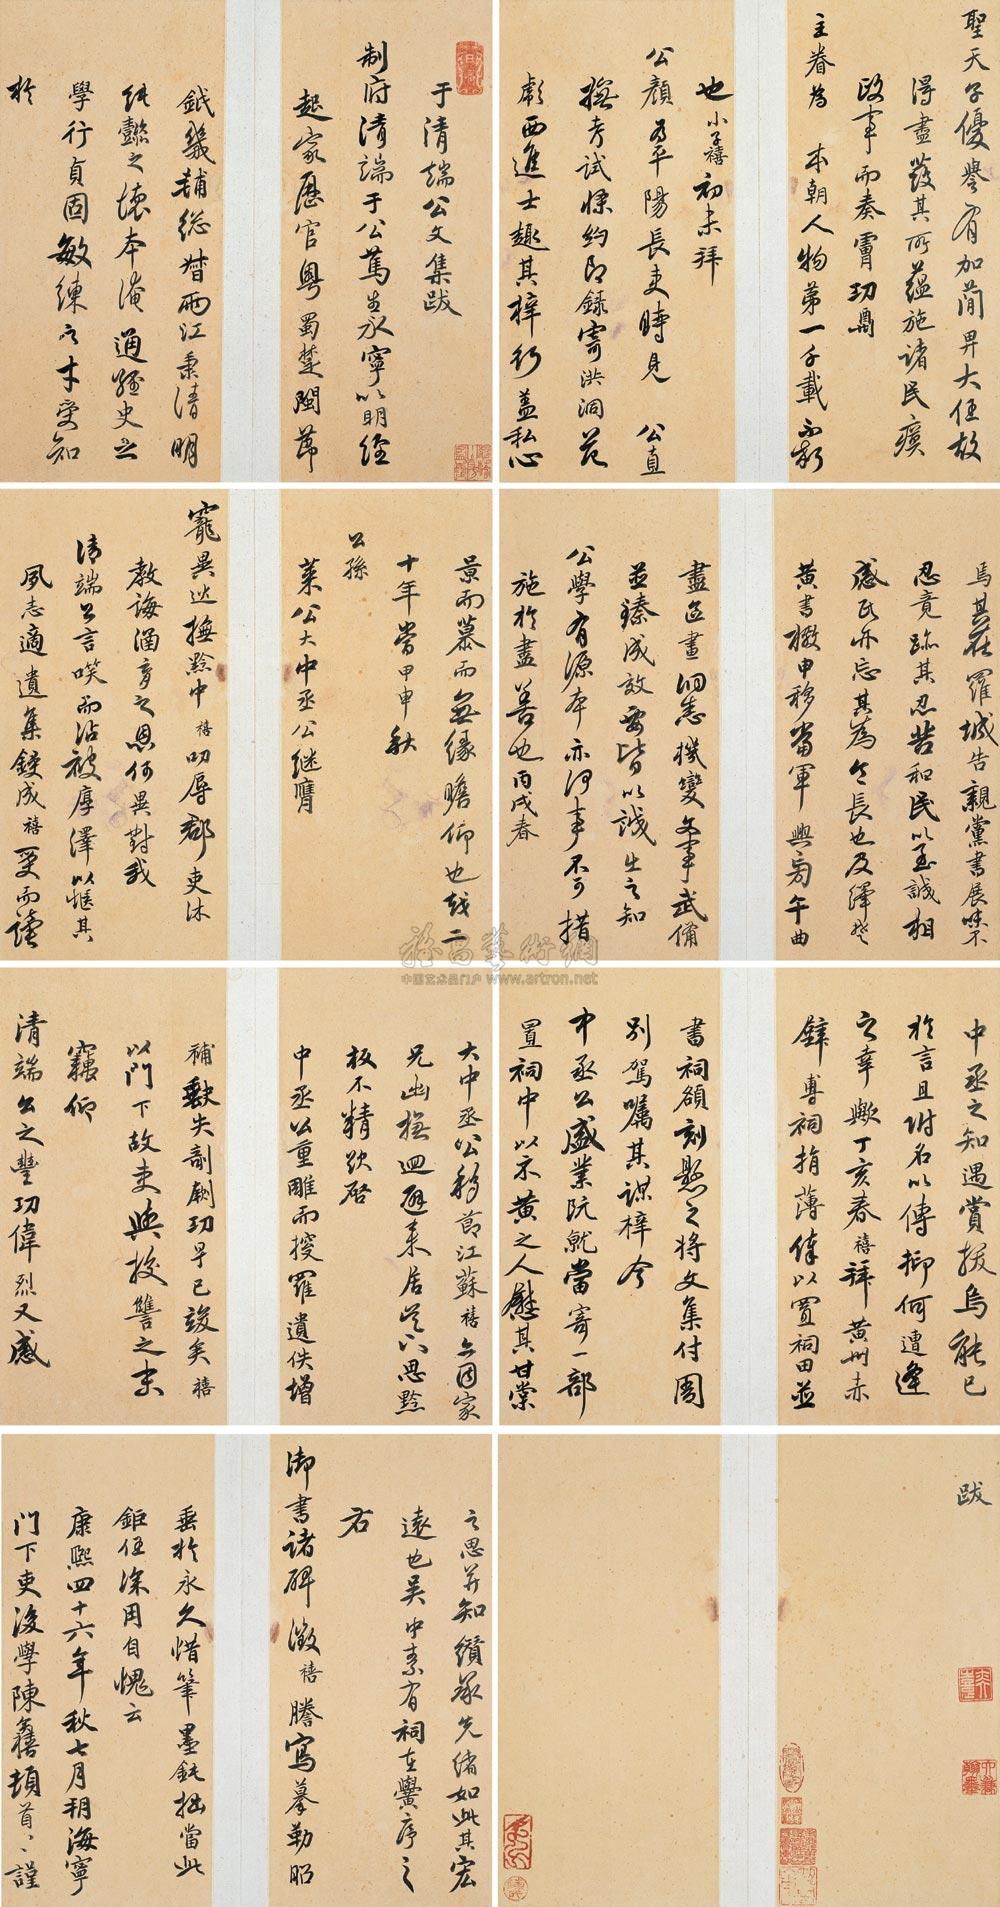 于清端公文集跋
制府清端于公篤生永寧以明經
起家歷官粵蜀楚閩節
鉞畿輔總督兩江秉清明
純懿之懷本淹通經史之
學行貞固敏練之才受知
於
聖天子優眷有加簡畀大任故
得盡發其所蘊施諸民瘼
政事而奏膚功鼎
主眷為本朝人物第一千載不朽
也小子禧初未拜
公顏為平陽長吏時見公直
撫考試條約即錄寄洪洞范
彪西進士趣其梓行蓋私心
景而慕而無緣瞻仰也越二
十年當甲申秋
公孫
萊公大中丞公繼膺
寵異迻撫黔中禧叨辱郡吏沐
教誨涵育之恩何異對我
清端公言笑而沾被厚澤以愜其
夙志適遺集鋟成禧受而讀
焉其在羅城告親黨書展咏不
忍竟跡其忍苦和民以至誠相
感民亦忘其為令長也及繹楚
黃書檄申移當軍興旁午曲
盡區畫洞悉機變文事武備
並臻成效要皆以誠生之知
公學有源本亦何事不可措
施於盡善也丙戌春
大中丞公移節江蘇禧亦因家
兄出撫迴避來居吳下思黔
板不精欲啓
中丞公重雕而搜羅遺佚增
補缺失剞劂功早已竣矣禧
以門下故吏與校讐之末
竊仰
清端公之豐功偉烈又感
中丞之知遇賞拔烏能已
於言且附名以傳抑何遭逢
之幸歟丁亥春禧拜黃州赤
壁專祠捐薄俸以置祠田並
書祠額刻懸之將文集付周
別駕囑其謀梓今
中丞公盛業既就當寄一部
置祠中以示黃之人慰其甘棠
之思并知纘承先緒如此其宏
遠也吳中素有祠在黌序之
右
御書諸碑徵禧謄寫摹勒昭
垂於永久惜筆墨鈍拙當此
鉅任深用自愧云
康熙四十六年秋七月朔海寧
門下吏後學陳奕禧頓首、謹
跋
雅昌藝術網
中国艺术品门户 www.artron.net